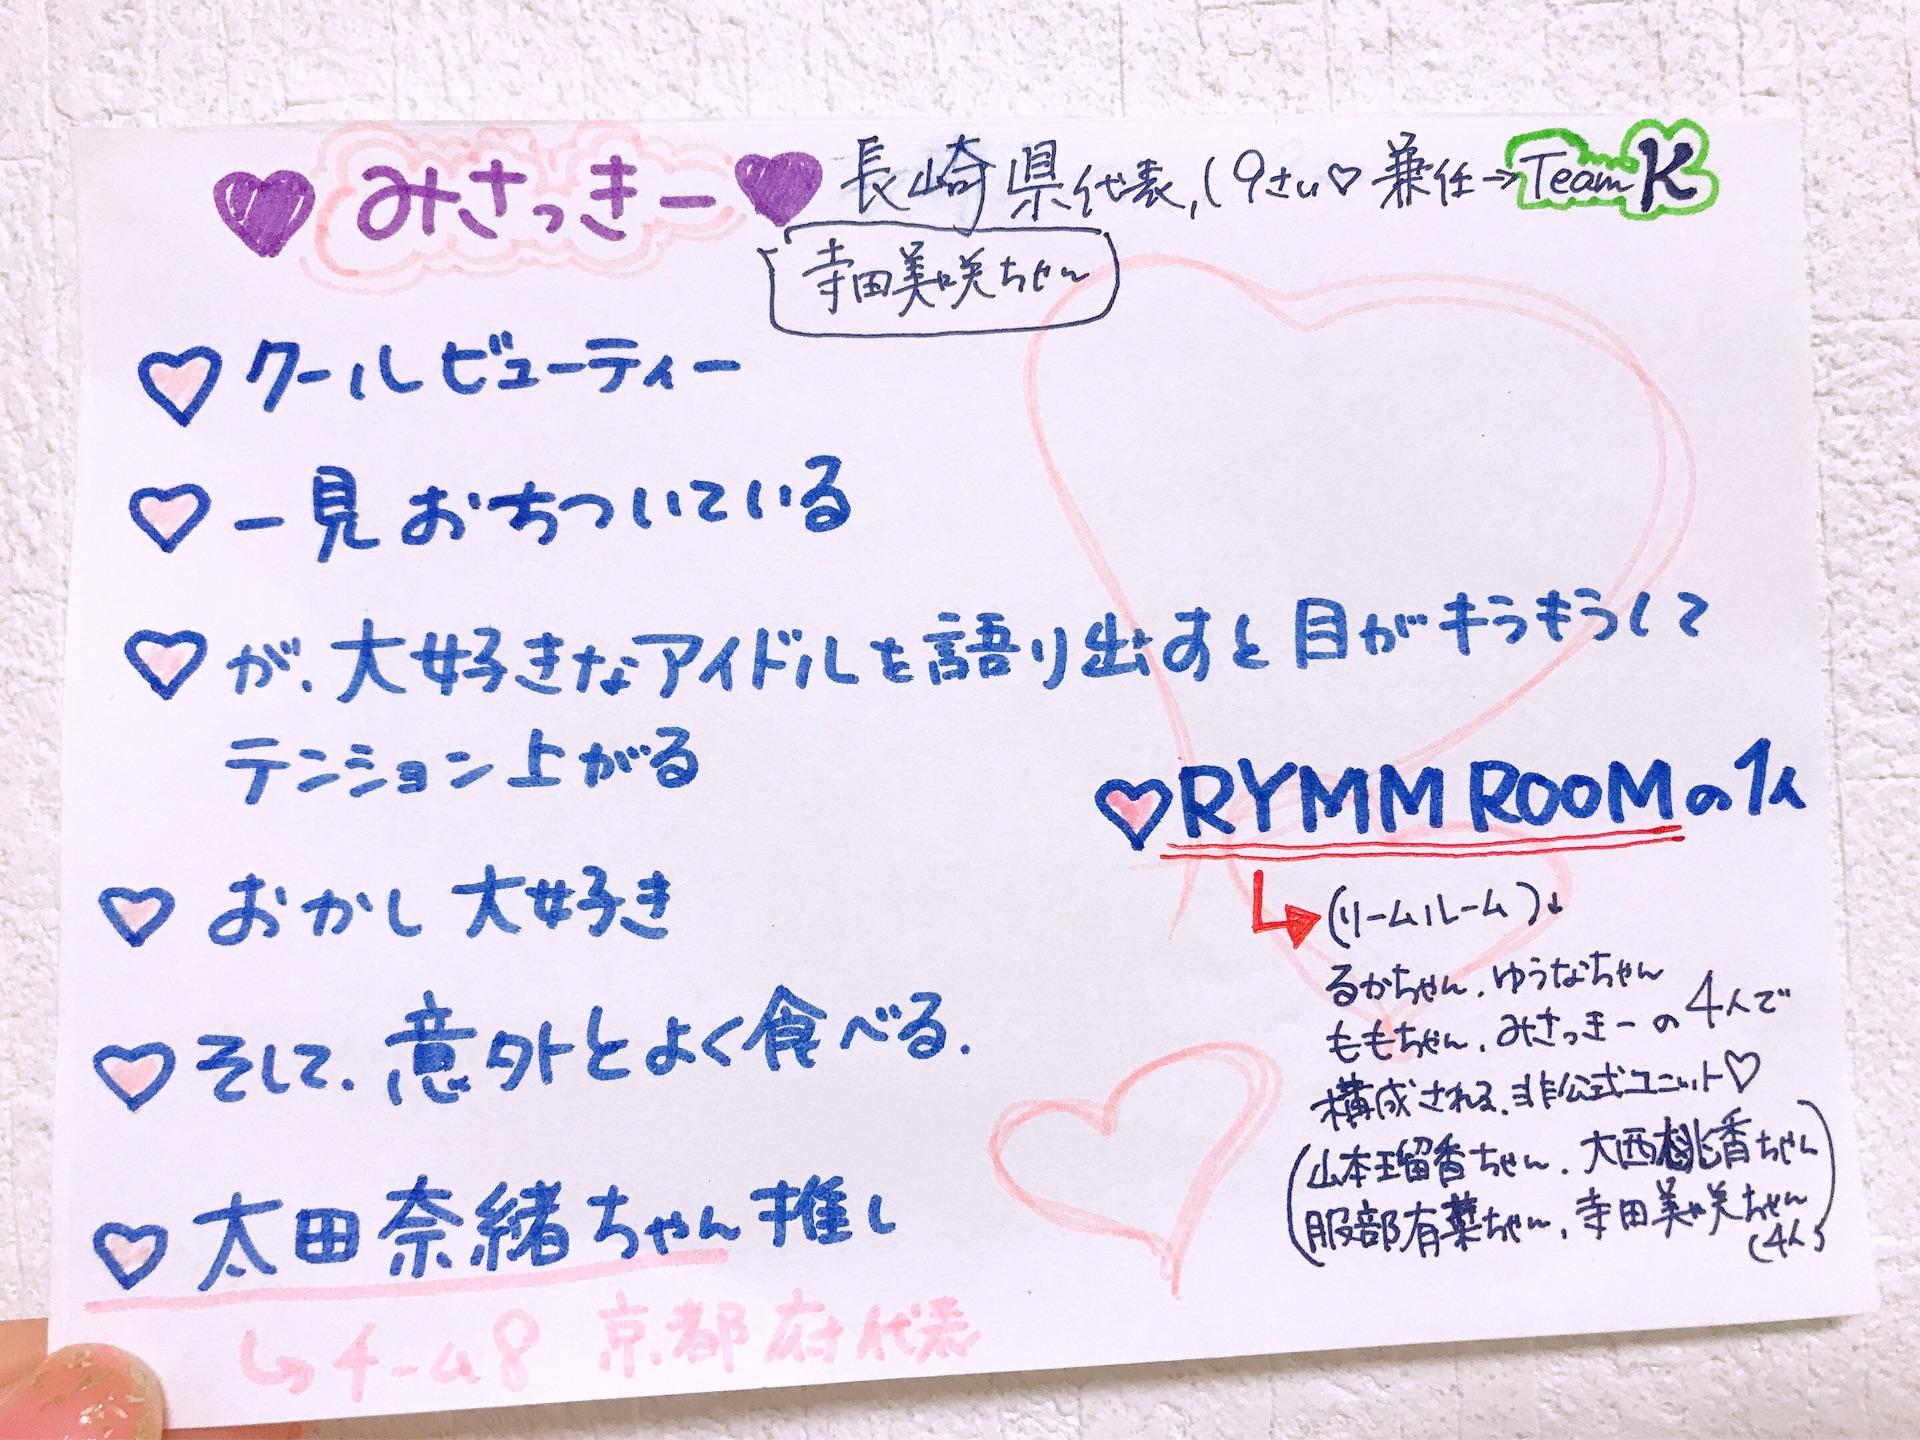 みさっきー
長崎県代表,19さい♡ 兼任→Team K
寺田美咲ちゃん
クールビューティー
一見おちついている
が、大好きなアイドルを語り出すと目がキラキラして
テンション上がる
おかし大好き
そして、意外とよく食べる.
太田奈緒ちゃん推し
↳チーム8 京都府代表
RYMM ROOMの1人
(リームルーム)↓
るかちゃん、ゆうなちゃん
ももちゃん、みさっきーの4人で
構成される、非公式ユニット♡
(山本瑠香ちゃん、大西桃香ちゃん
服部有菜ちゃん、寺田美咲ちゃん)
(4人)